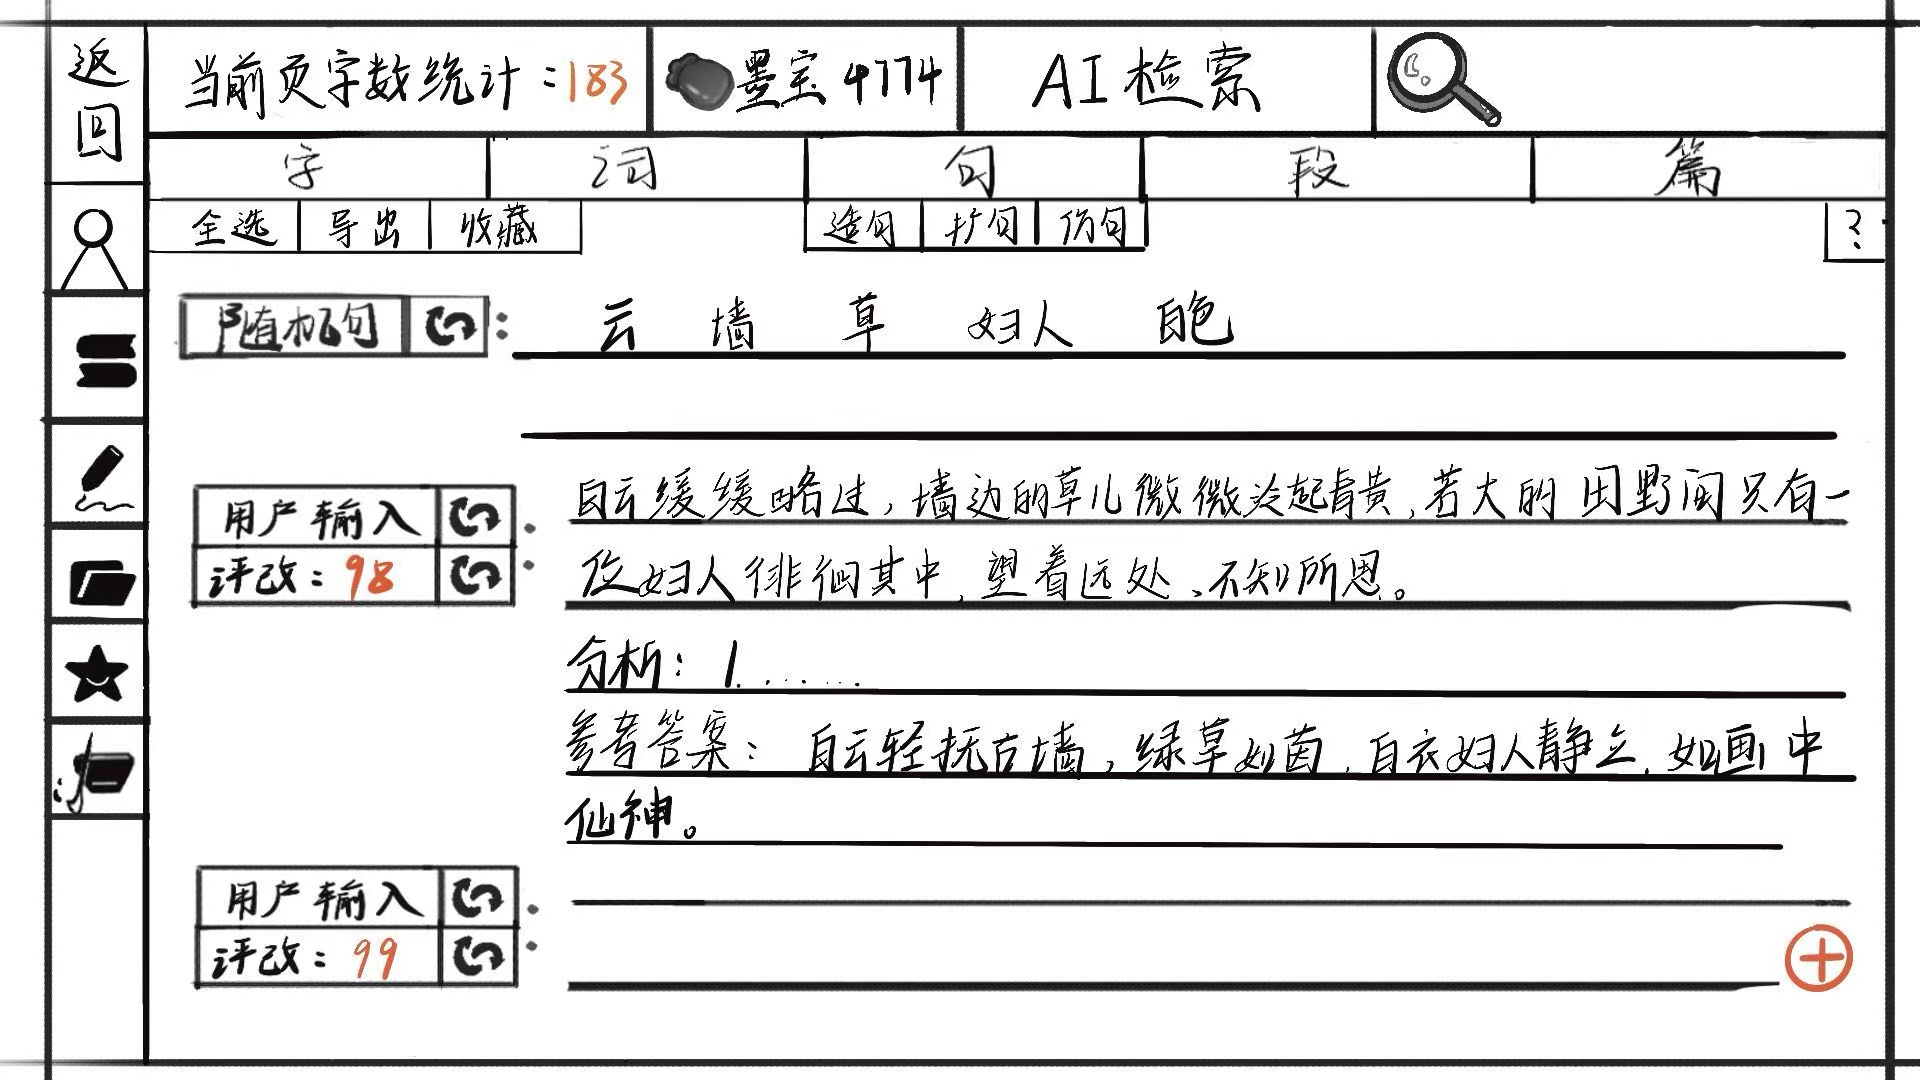 返回
当前页字数统计:183
墨宝4774
AI检索
字 词 句 段 篇
全选 导出 收藏 造句 扩句 仿句 ?
随机句 : 云 墙 草 妇人 白色
用户输入 : 白云缓缓略过,墙边的草儿微微泛起青黄,若大的田野间只有一
评改:98 : 位妇人徘徊其中,望着远处、不知所思。
分析: 1......
参考答案: 白云轻抚古墙,绿草如茵,白衣妇人静立,如画中
仙神。
用户输入 :
评改:99 :